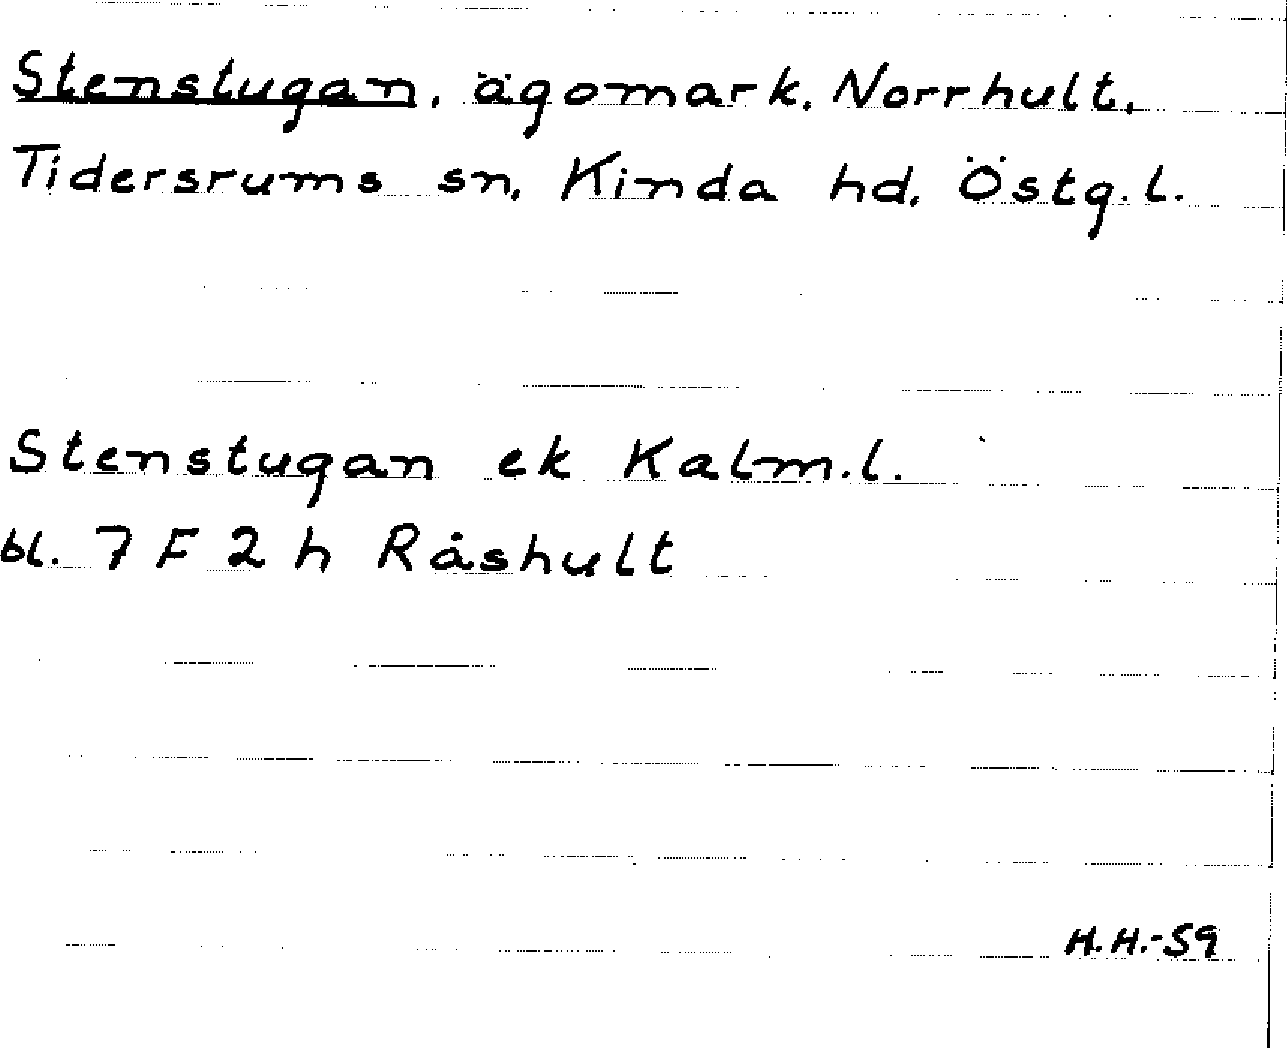 Stenstugan, ägomark, Norrhult,
Tidersrums sn, Kinda hd, Östg.l.
Stenstugan ek Kalm.l.
bl. 7 F 2 h Råshult
H.H.-59